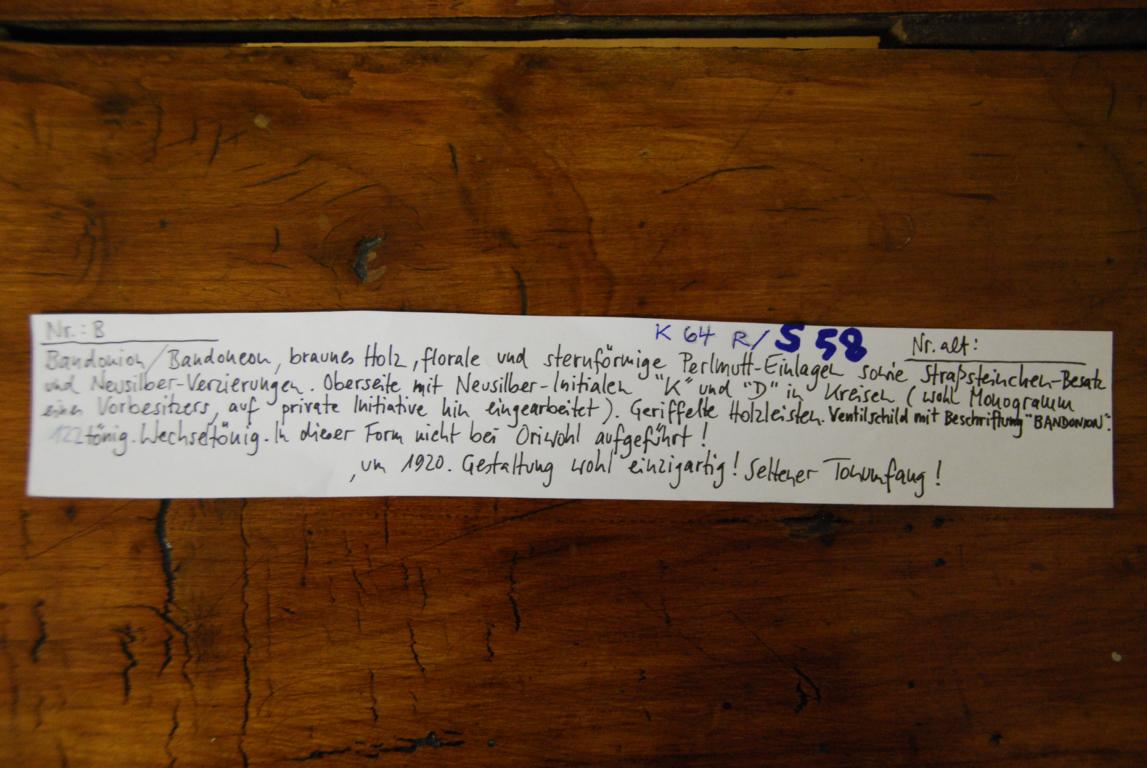 Nr.: B K 64 R/ S 58 Nr. alt:
Bandonion/Bandoneon, braunes Holz, florale und sternförmige Perlmutt-Einlagen sowie Straßsteinchen-Besatz
und Neusilber-Verzierungen. Oberseite mit Neusilber-Initialen "K" und "D" in Kreisen (wohl Monogramm
eines Vorbesitzers, auf private Initiative hin eingearbeitet). Geriffelte Holzleisten. Ventilschild mit Beschriftung "BANDONION".
122tönig. Wechseltönig. In dieser Form nicht bei Oriwohl aufgeführt!
, um 1920. Gestaltung wohl einzigartig! Seltener Tonumfang!